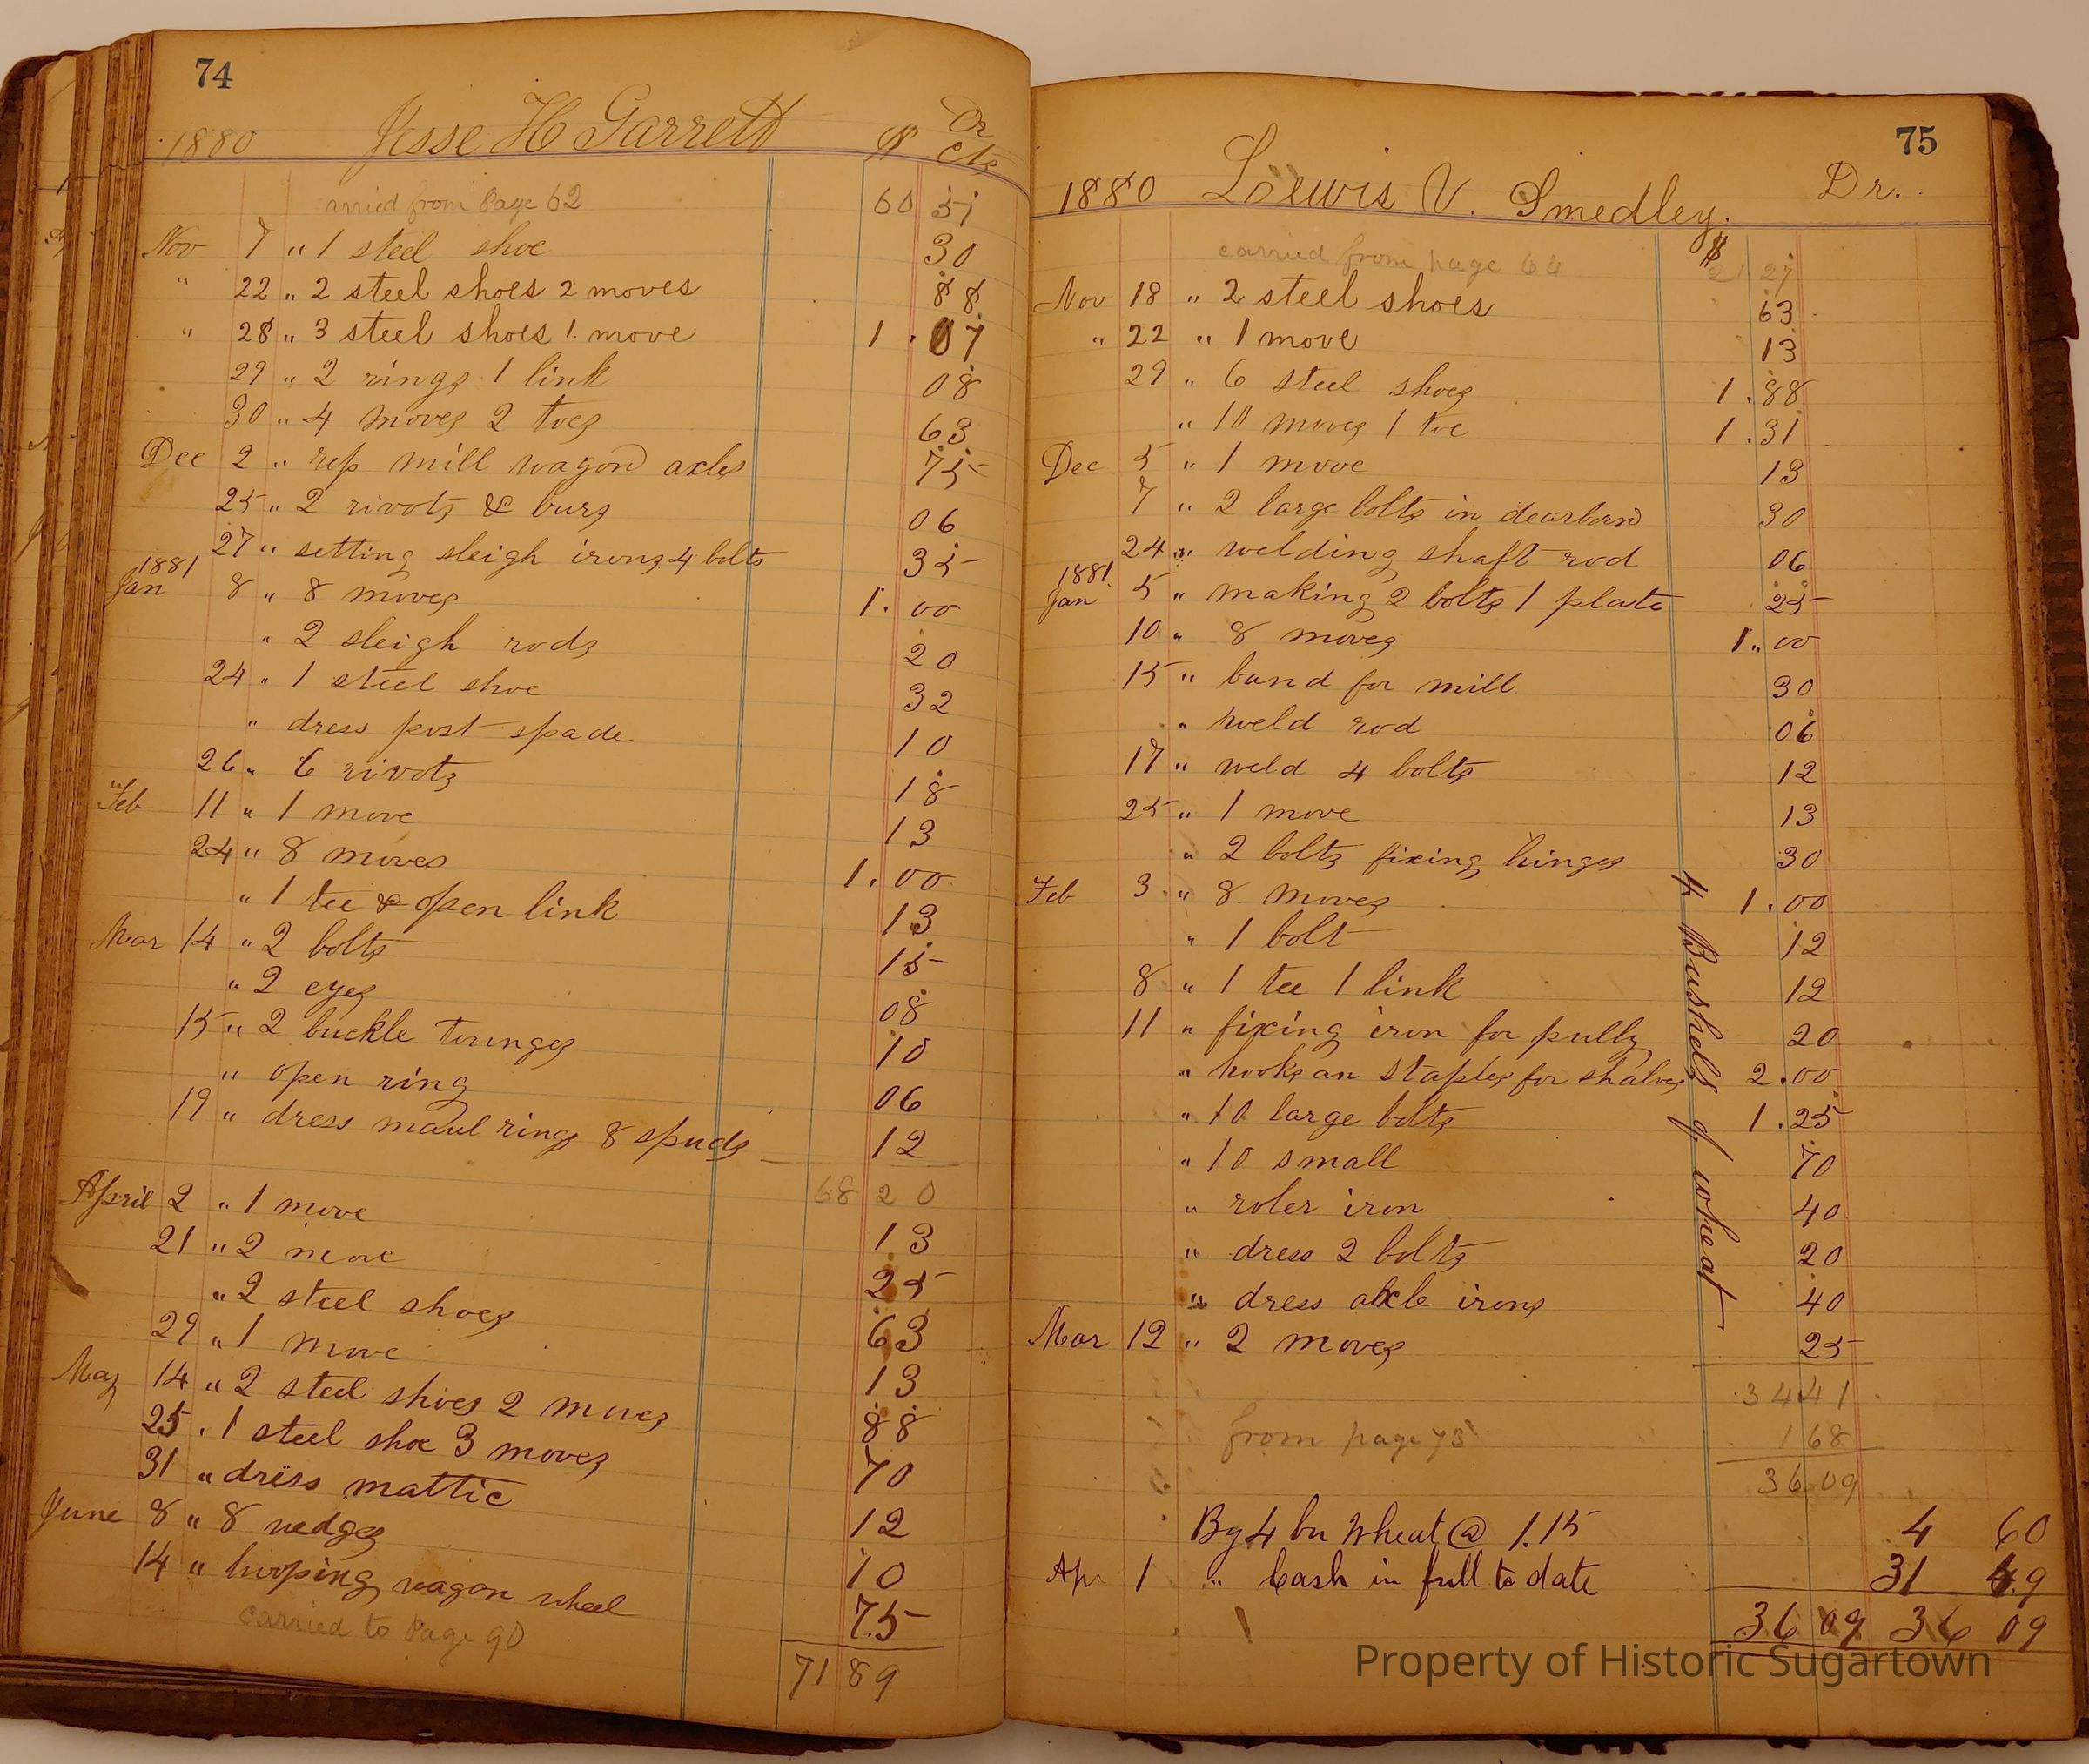 74
Jesse H Garrett Dr
1880 $ cts
arried from Page 62 60 57
Nov 7 " 1 steel shoe 30
" 22 " 2 steel shoes 2 moves 88
" 28 " 3 steel shoes 1 move 1.07
29 " 2 rings 1 link 08
30 " 4 moves 2 toes 63
Dec 2 " rep mill wagon axles 75
25 " 2 rivots & burs 06
27 " setting sleigh irons 4 bolts 35
1881
Jan 8 " 8 moves 1.00
" 2 sleigh rods 20
24 " 1 steel shoe 32
" dress post spade 10
26 " 6 rivots 18
Feb 11 " 1 move 13
24 " 8 moves 1.00
" 1 tee & open link 13
Mar 14 " 2 bolts 15
" 2 eyes 08
15 " 2 buckle tounges 10
" open ring 06
19 " dress maul rings 8 spuds 12
68 20
April 2 " 1 move 13
21 " 2 move 25
" 2 steel shoes 63
29 " 1 move 13
May 14 " 2 steel shoes 2 moves 88
25 " 1 steel shoe 3 moves 70
31 " dress mattic 12
June 8 " 8 wedges 10
14 " hooping wagon wheel 75
carried to Page 90
71 89
75
1880 Lewis V. Smedley. Dr.
$
carried from page 64 21 27
Nov 18 " 2 steel shoes 63
" 22 " 1 move 13
29 " 6 steel shoes 1.88
" 10 moves 1 toe 1.31
Dec 5 " 1 move 13
7 " 2 large bolts in dearborn 30
24 " welding shaft rod 06
1881
Jan 5 " making 2 bolts 1 plate 25
10 " 8 moves 1.00
15 " band for mill 30
" weld rod 06
17 " weld 4 bolts 12
25 " 1 move 13
" 2 bolts fixing hinges 30
Feb 3 " 8 moves 1.00
" 1 bolt 12
8 " 1 tee 1 link 12
11 " fixing iron for pully 20
" hooks an staples for shalves 2.00
" 10 large bolts 1.25
" 10 small 70
" roler iron 40
" dress 2 bolts 20
" dress axle irons 40
Mar 12 " 2 moves 25
4 Bushels of wheat
34 41
from page 73 1 68
36.09
By 4 bu Wheat @ 1.15 4 60
Apr 1 " Cash in full to date 31 49
36 09 36 09
Property of Historic Sugartown